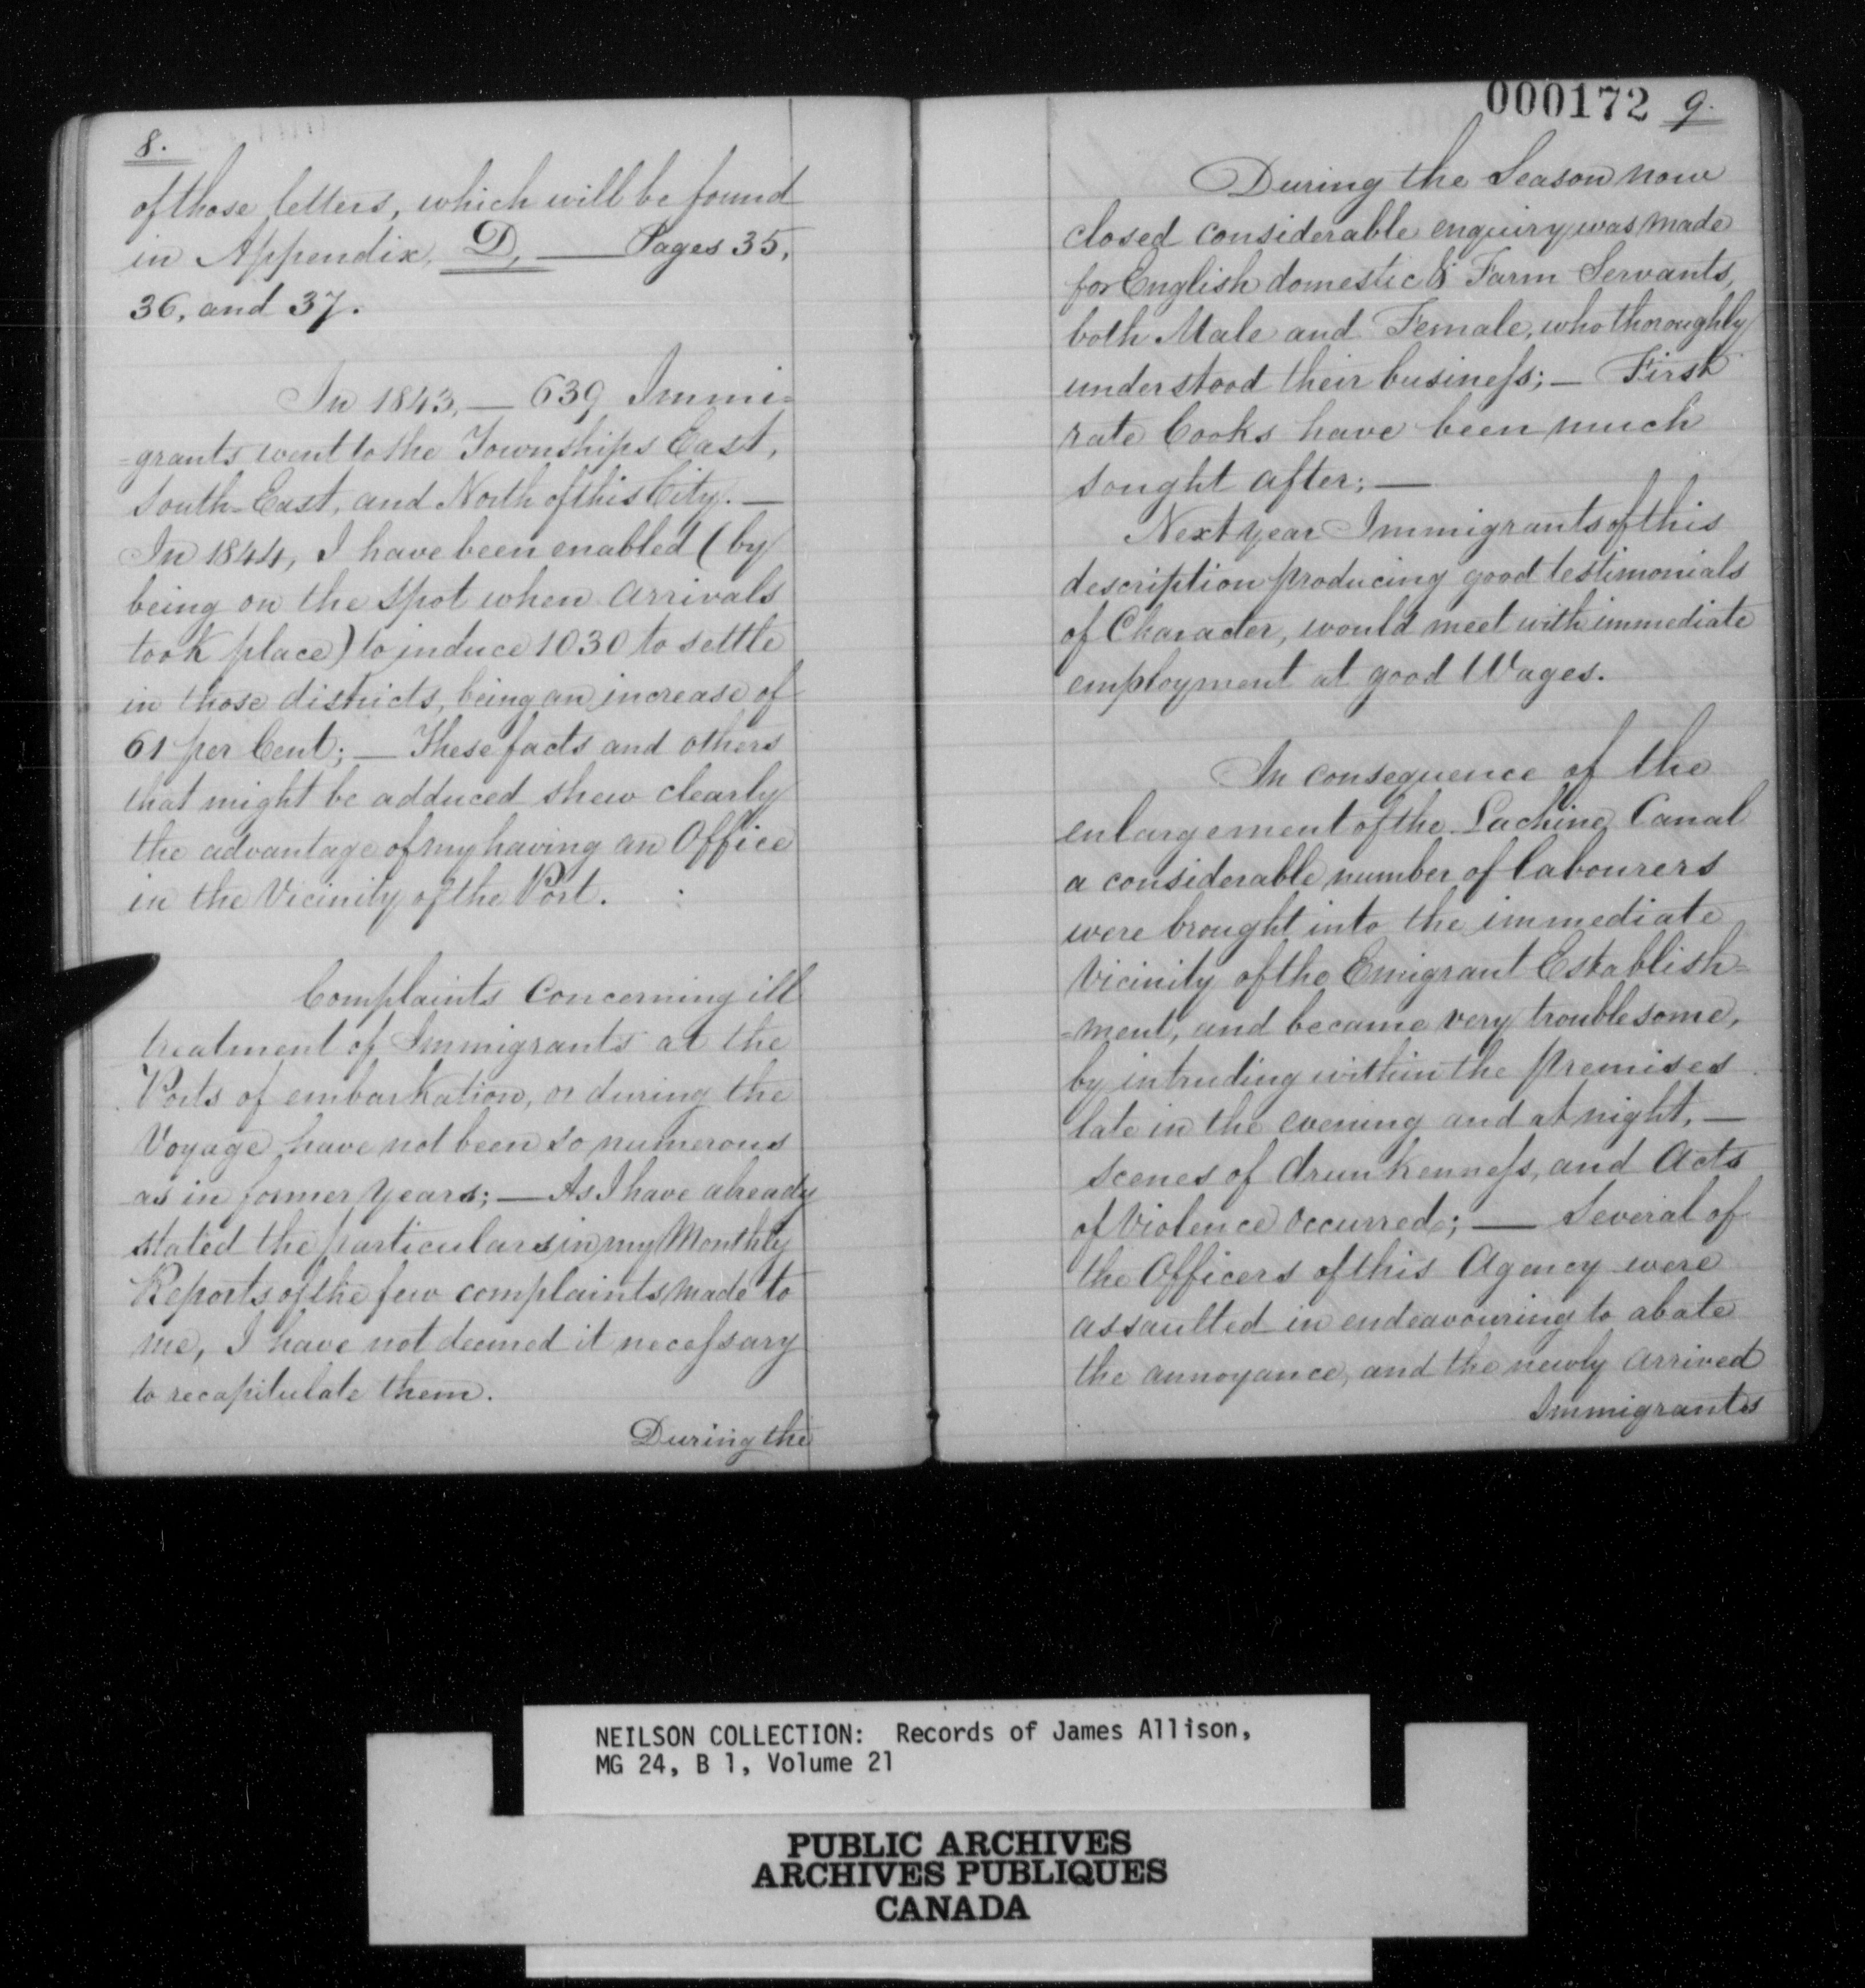 8.
of those letters, which will be found
in Appendix, D, — Pages 35,
36, and 37.
In 1843, — 639 Immi=
=grants went to the Townships East,
South-East, and North of this City. —
In 1844, I have been enabled (by
being on the spot when arrivals
took place) to induce 1030 to settle
in those districts, being an increase of
61 per Cent; — These facts and others
that might be adduced shew clearly
the advantage of my having an Office
in the Vicinity of the Port. :
Complaints Concerning ill
treatment of Immigrants at the
Ports of embarkation, or during the
Voyage have not been so numerous
as in former years; — As I have already
stated the particulars in my Monthly
Reports of the few complaints made to
me, I have not deemed it necessary
to recapitulate them.
During the
000172 9.
During the Season now
closed considerable enquiry was made
for English domestic & Farm Servants,
both Male and Female, who thoroughly
understood their business; — First
rate Cooks have been much
sought after; —
Next year Immigrants of this
description producing good testimonials
of Character, would meet with immediate
employment at good Wages.
In consequence of the
enlargement of the Lachine Canal
a considerable number of labourers
were brought into the immediate
Vicinity of the Emigrant Establish=
=ment, and became very troublesome,
by intruding within the premises
late in the evening and at night, —
scenes of drunkenness, and Acts
of Violence occurred; — Several of
the Officers of this Agency were
assaulted in endeavouring to abate
the annoyance, and the newly arrived
Immigrants
NEILSON COLLECTION: Records of James Allison,
MG 24, B 1, Volume 21
PUBLIC ARCHIVES
ARCHIVES PUBLIQUES
CANADA